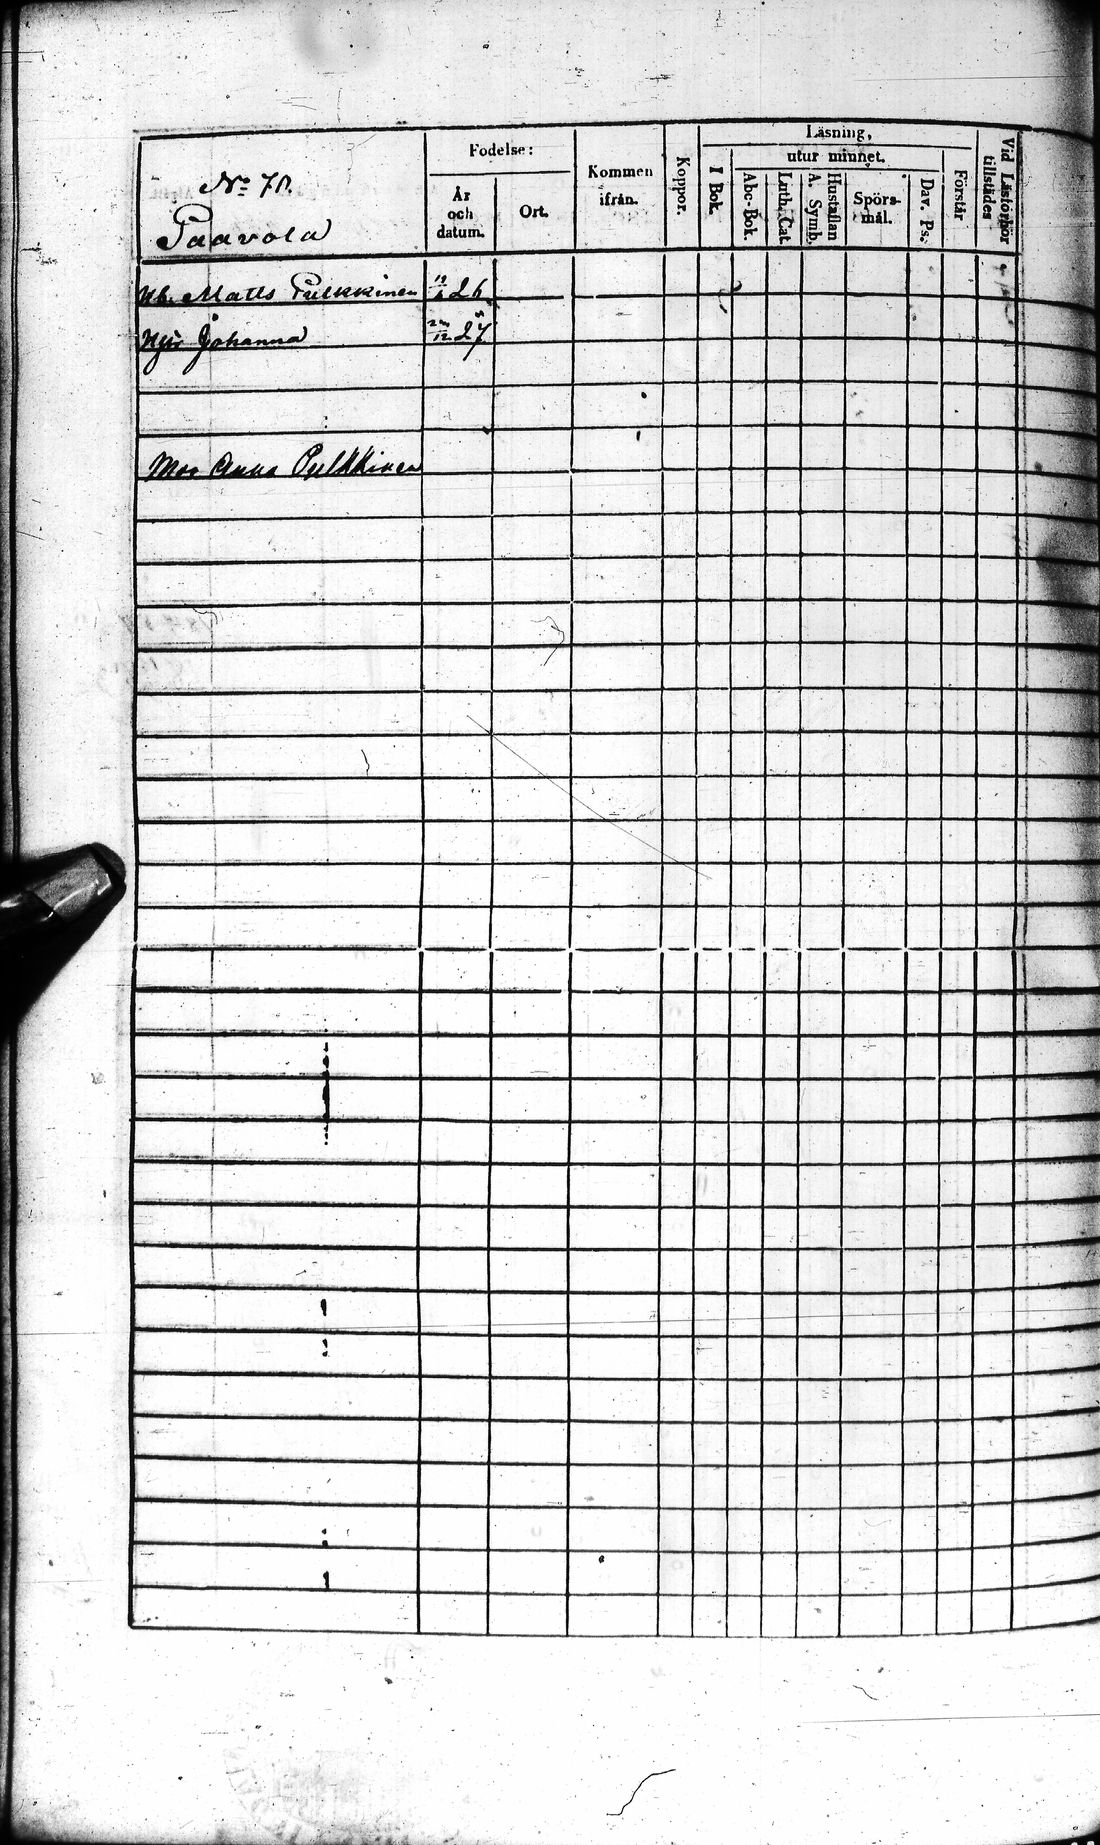 Nº 70.
Paavola
Födelse:
År
och
datum.
Ort.
Kommen
ifrån.
Koppor.
Läsning,
I Bok.
utur minnet.
Abc-Bok.
Luth. Cat.
Hustaflan
A. Symb.
Spörs-
mål.
Dav. Ps.
Förstår
Vid Läsförhör
tillstädes
Matts Pulkkinen 26
Johanna 27
Mor Anna Pulkkinen